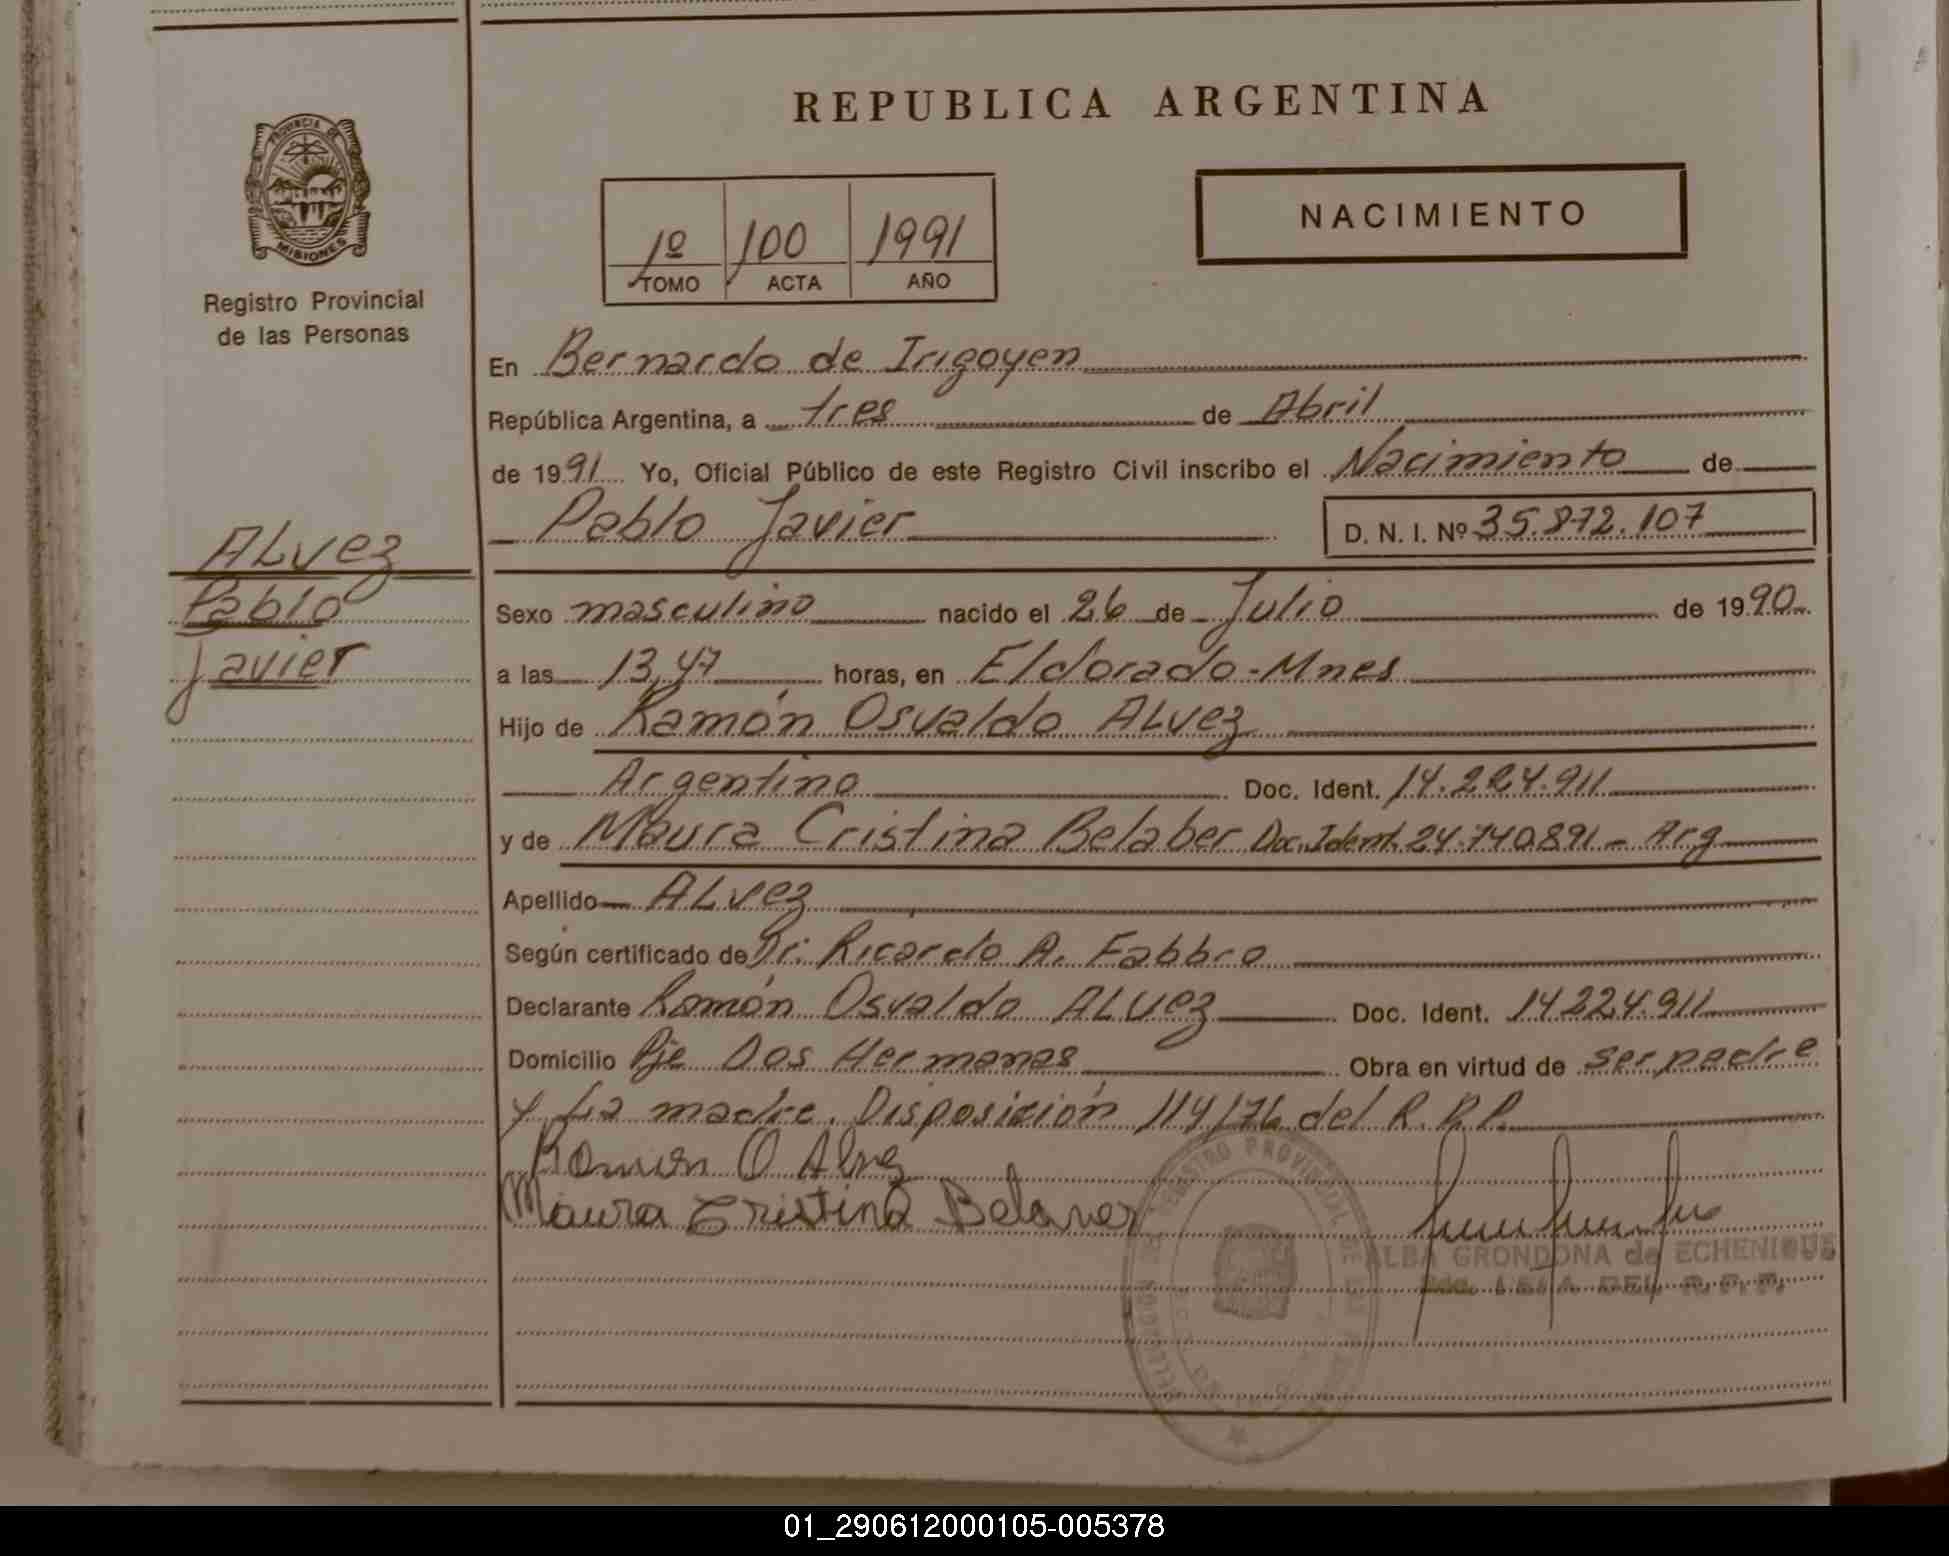 REPUBLICA ARGENTINA
PROVINCIA DE
MISIONES
Registro Provincial
de las Personas
1º 100 1991
TOMO ACTA AÑO
NACIMIENTO
En Bernardo de Irigoyen
República Argentina, a tres de Abril
de 1991 Yo, Oficial Público de este Registro Civil inscribo el Nacimiento de
Pablo Javier D. N. I. Nº 35.872.107
ALvez
Pablo
Javier
Sexo masculino nacido el 26 de Julio de 1990
a las 13,47 horas, en Eldorado-Mnes
Hijo de Ramón Osvaldo ALvez
Argentino Doc. Ident. 14.224.911
y de Maura Cristina Belaber Doc. Ident. 24.740.891 - Arg
Apellido ALvez
Según certificado de Dr. Ricardo A. Fabbro
Declarante Ramón Osvaldo ALvez Doc. Ident. 14224.911
Domicilio Pje Dos Hermanas Obra en virtud de ser padre
y La madre. Disposición 114/76 del R.P.P.
Ramon O Alvez
Maura Cristina Belaver
REGISTRO PROVINCIAL DE LAS
ALBA GRONDONA de ECHENIQUE
DEL R.P.P.
01_290612000105-005378